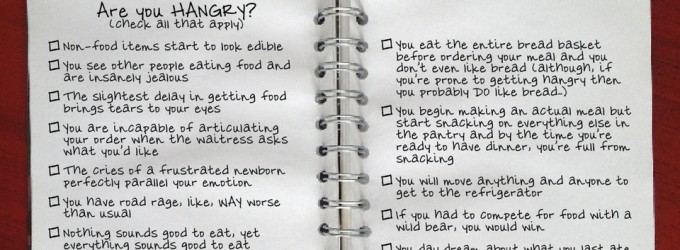 Are you HANGRY?
(check all that apply)
Non-food items start to look edible
You see other people eating food and
are insanely jealous
The slightest delay in getting food
brings tears to your eyes
You are incapable of articulating
your order when the waitress asks
what you'd like
The cries of a frustrated newborn
perfectly parallel your emotion
You have road rage, like, WAY worse
than usual
Nothing sounds good to eat, yet
everything sounds good to eat
You eat the entire bread basket
before ordering your meal and you
don't even like bread (although, if
you're prone to getting hangry then
you probably DO like bread...)
You begin making an actual meal but
start snacking on everything else in
the pantry and by the time you're
ready to have dinner, you're full from
snacking
You will move anything and anyone to
get to the refrigerator
If you had to compete for food with a
wild bear, you would win
You day dream about what you last ate